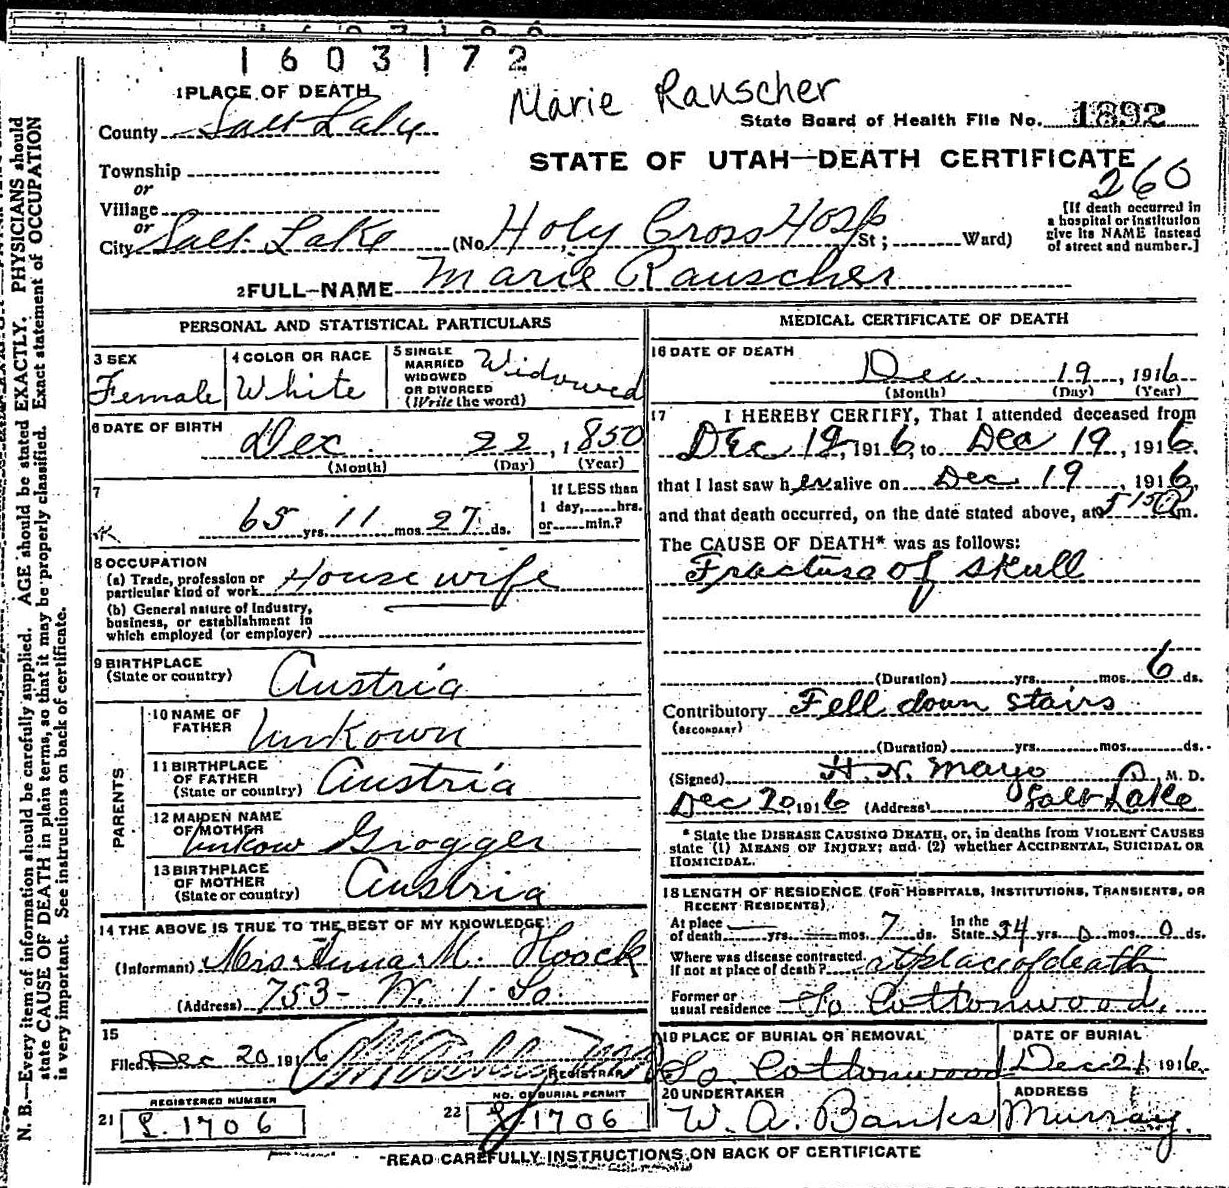 1603172
1 PLACE OF DEATH
Marie Rauscher
County Salt Lake
State Board of Health File No. 1892
STATE OF UTAH—DEATH CERTIFICATE
260
Township
or
Village
or
City Salt Lake (No. Holy Cross Hosp St; Ward)
[If death occurred in
a hospital or institution
give its NAME instead
of street and number.]
2 FULL NAME Marie Rauscher
PERSONAL AND STATISTICAL PARTICULARS
3 SEX
Female
4 COLOR OR RACE
White
5 SINGLE
MARRIED
WIDOWED
OR DIVORCED
(Write the word)
Widowed
6 DATE OF BIRTH
Dec 22, 1850
(Month) (Day) (Year)
7
65 yrs. 11 mos. 27 ds.
If LESS than
1 day, hrs.
or min.?
8 OCCUPATION
(a) Trade, profession or
particular kind of work House wife
(b) General nature of Industry,
business, or establishment in
which employed (or employer)
9 BIRTHPLACE
(State or country) Austria
PARENTS
10 NAME OF
FATHER Unkown
11 BIRTHPLACE
OF FATHER
(State or country) Austria
12 MAIDEN NAME
OF MOTHER
Unkow Grogger
13 BIRTHPLACE
OF MOTHER
(State or country) Austria
14 THE ABOVE IS TRUE TO THE BEST OF MY KNOWLEDGE
(Informant) Mrs. M. Hoock
(Address) 753- W. 1. So
15
Filed Dec 20 1916
REGISTRAR
REGISTERED NUMBER
21 S. 1706
NO. OF BURIAL PERMIT
22 1706
MEDICAL CERTIFICATE OF DEATH
16 DATE OF DEATH
Dec. 19, 1916
(Month) (Day) (Year)
17 I HEREBY CERTIFY, That I attended deceased from
Dec 12, 1916, to Dec 19, 1916.
that I last saw her alive on Dec 19, 1916,
and that death occurred, on the date stated above, at m.
The CAUSE OF DEATH* was as follows:
Fracture of skull
(Duration) yrs. mos. 6 ds.
Contributory Fell down stairs
(SECONDARY)
(Duration) yrs. mos. ds.
(Signed) H. N. Mayo M. D.
Dec 20, 1916 (Address) Salt Lake
* State the DISEASE CAUSING DEATH, or, in deaths from VIOLENT CAUSES
state (1) MEANS OF INJURY; and (2) whether ACCIDENTAL, SUICIDAL OR
HOMICIDAL.
18 LENGTH OF RESIDENCE (FOR HOSPITALS, INSTITUTIONS, TRANSIENTS, OR
RECENT RESIDENTS).
At place
of death yrs. mos. 7 ds.
In the
State 34 yrs. 0 mos. 0 ds.
Where was disease contracted,
if not at place of death? at place of death
Former or
usual residence So Cottonwood,
19 PLACE OF BURIAL OR REMOVAL
So. Cottonwood
DATE OF BURIAL
Dec 21 1916
20 UNDERTAKER
W. A. Banks
ADDRESS
Murray.
READ CAREFULLY INSTRUCTIONS ON BACK OF CERTIFICATE
N. B.—Every item of information should be carefully supplied. AGE should be stated EXACTLY. PHYSICIANS should
state CAUSE OF DEATH in plain terms, so that it may be properly classified. Exact statement of OCCUPATION
is very important. See instructions on back of certificate.